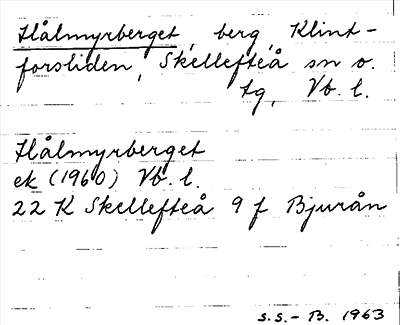 Hålmyrberget, berg, Klint-
forsliden, Skellefteå sn o.
tg, Vb. l.
Hålmyrberget
ek (1960) Vb. l.
22 K Skellefteå 9 f Bjurån
S.S.-B. 1963